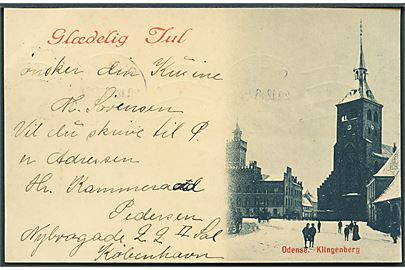 Glædelig Jul
ønsker din Kusine
H. Sørensen
Vil du skrive til P.
er Adressen
Hr. Kammeraad
Pedersen
Nybrogade 22 II Sal
København
Odense. Klingenberg